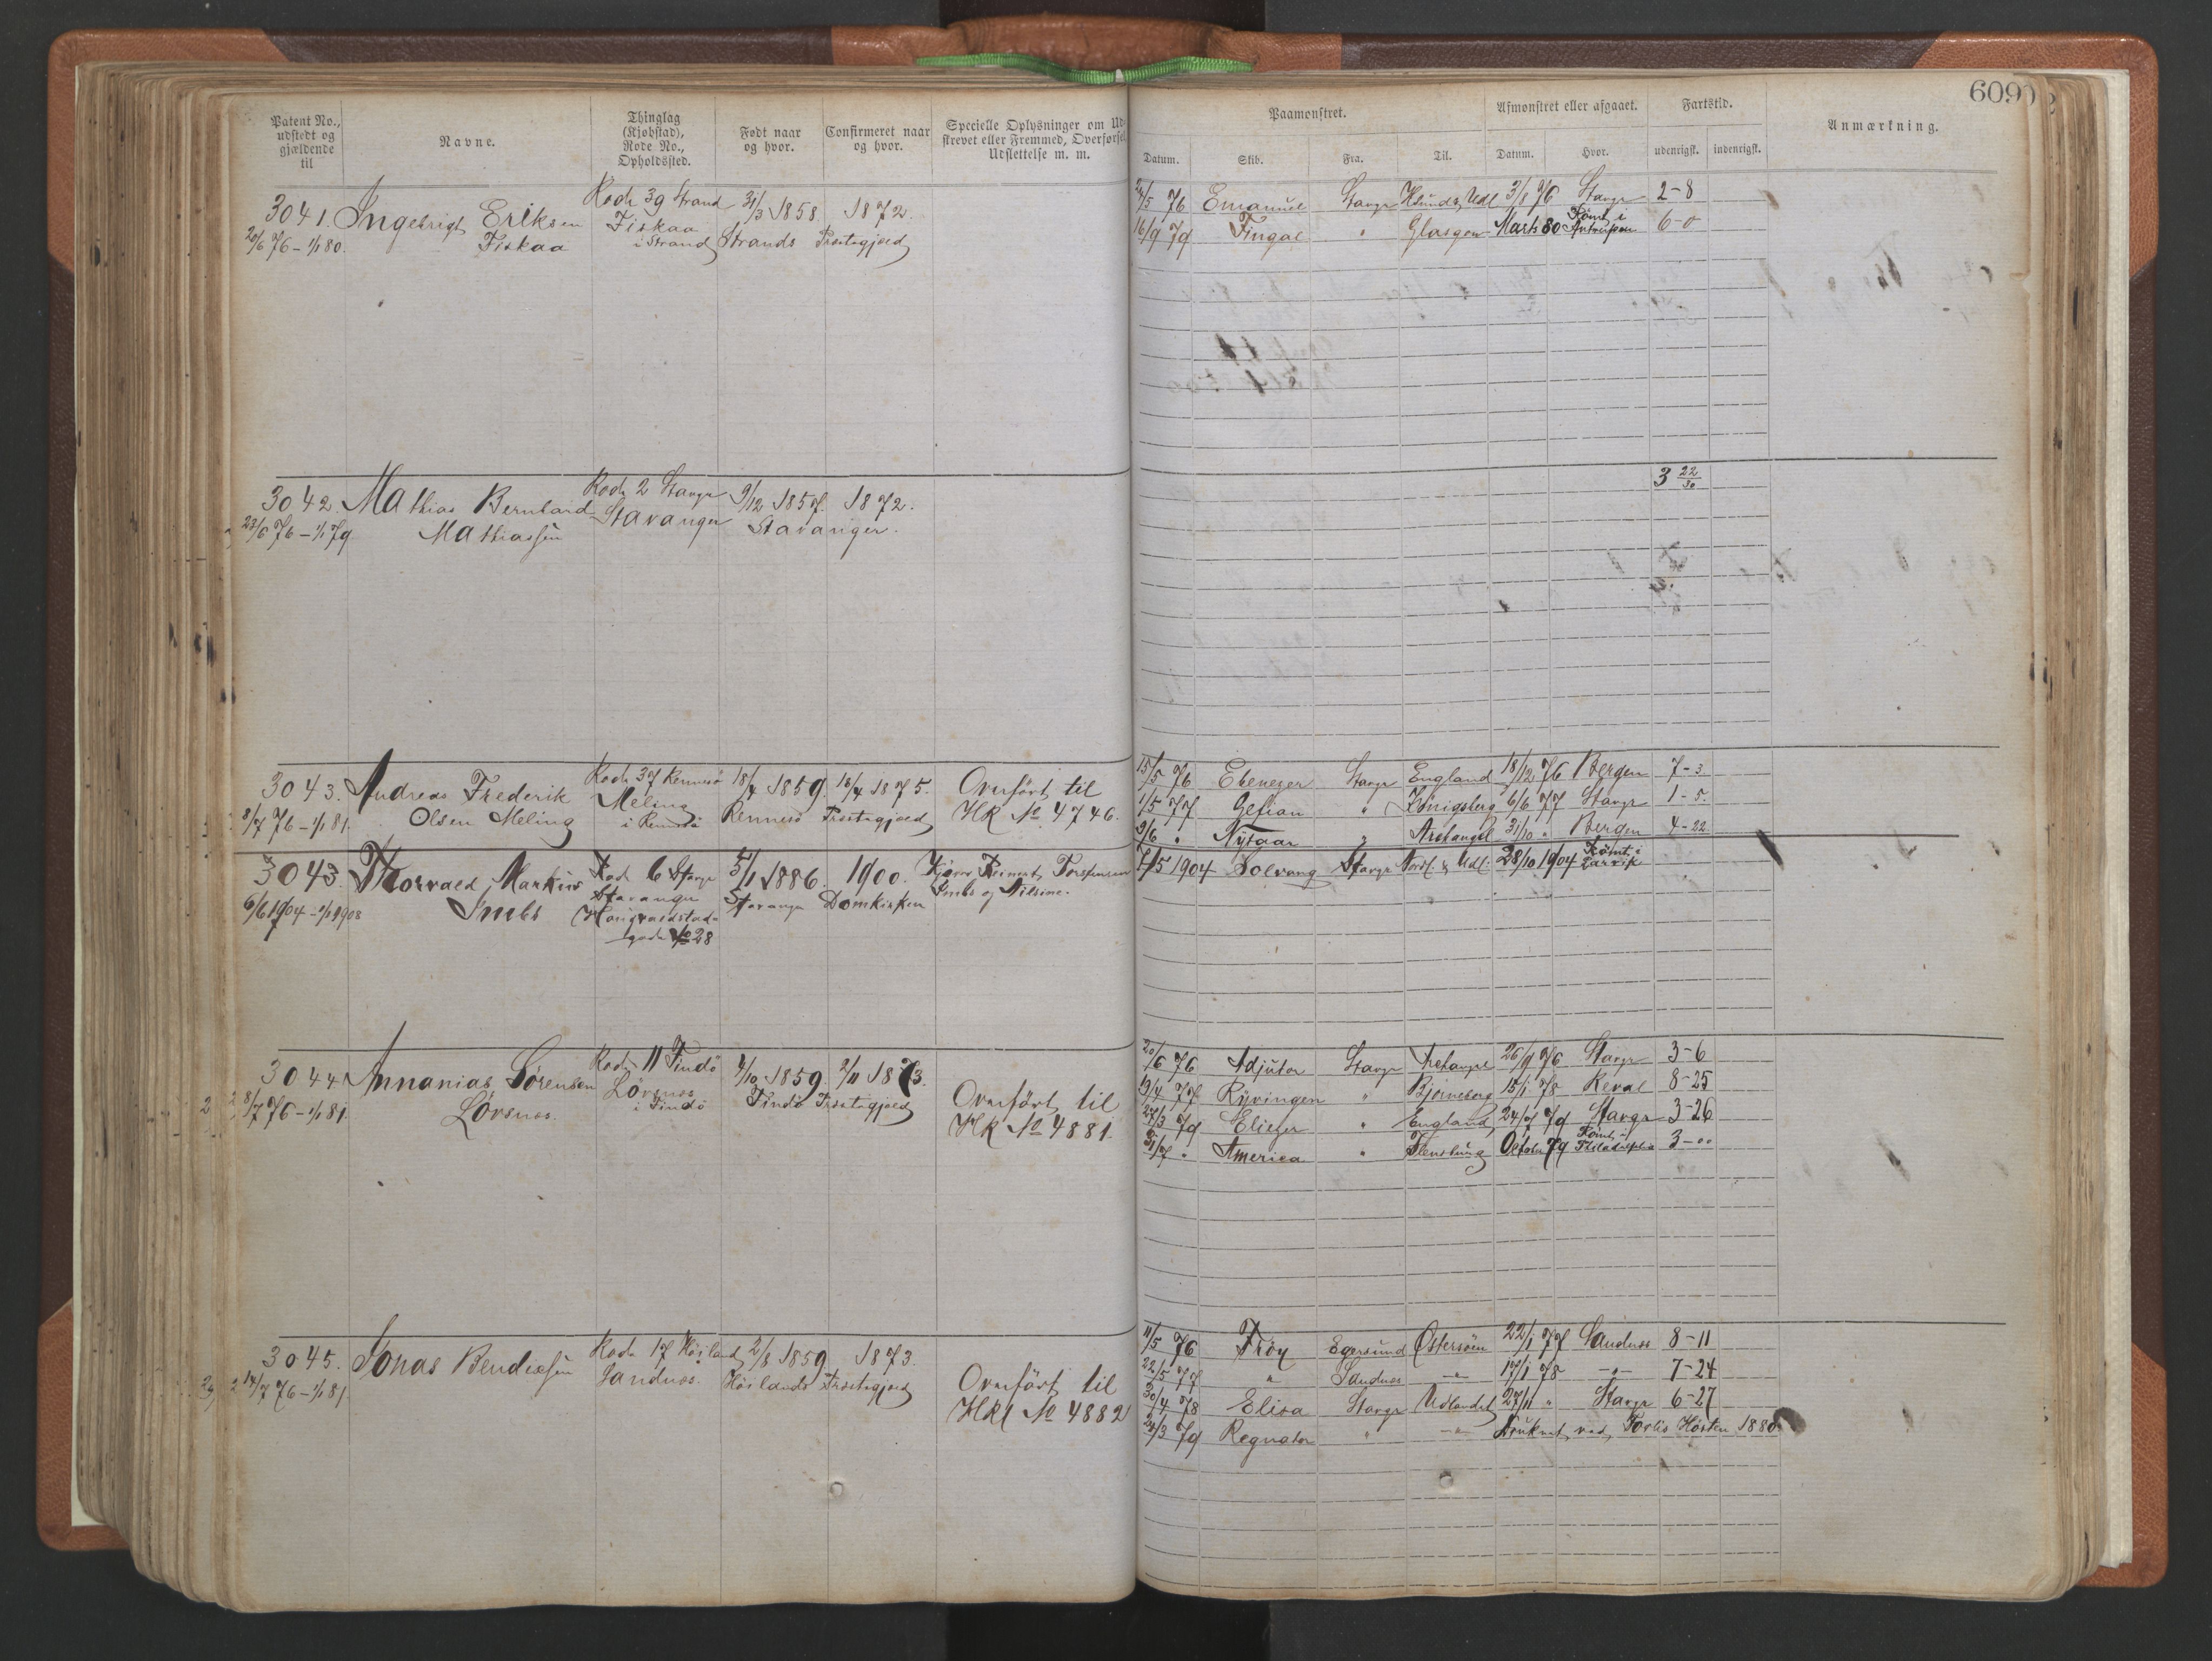 6090
Patent No., udstedt og gjældende til
Navne.
Thinglag (Kjøbstad), Rode No., Opholdssted.
Født naar og hvor.
Confirmeret naar og hvor.
Specielle Oplysninger om Ud-
skrevet eller Fremmed, Overførsel
Udslettelse m. m.
Paamønstret.
Afmønstret eller afgaaet.
Fartstid.
Anmærkning.
Datum. Skib. Fra. Til. Datum. Hvor. udenrigsk. indenrigsk.
3041. Ingebrigt Eriksen Rode 39 Strand 31/3 1858. 1872.
20/6 76 – 1/1 80. Fiskaa Fiskaa i Strand Strands Præstegjæld
24/5 76 Emanuel Stavgr Udl 3/8 76 Stavgr 2–8
16/9 79 Fingal " Glasgow Marts 80 Rømt i Antwerpen 6–0
3042. Mathias Bernhard Rode 2 Stavgr 9/12 1857. 1872.
23/6 76 – 1/1 79 Mathiassen Stavanger Stavanger.
3 22/30
3043. Andreas Frederik Rode 37 Rennesö 18/4 1859. 18/4 1875. Overført til
8/7 76 – 1/1 81. Olsen Meling Meling i Rennesö Rennesö Præstegjæld HR No 4746.
15/5 76 Ebenezer Stavgr England 18/12 76 Bergen 7–3
1/5 77 Gefion " Königsberg 6/6 77 Stavgr 1–5.
9/6 " Nygaar " Archangel 31/10 " Bergen 4–22
3043. Thorvald Markus Rod 6 Stavgr 5/1 1886. 1900. Torstensen
6/6 1904 – 1/1 1908 Smebs Stavanger Stavanger Domkirken Smebs og Nilsine.
gade No 28
7/5 1904 Solvang Stavgr Nords. & Udl: 28/10 1904 Rømt i Larvik
3044 Annanias Sörensen Rode 11 Findö 4/10 1859. 2/11 1873.
8/7 76 – 1/1 81. Lövsnes. Lövsnes i Findö Findö Præstegjæld Overført til
HR No 4881.
20/6 76 Adjutor Stavgr Archangel 26/9 76 Stavgr 3–6
19/4 77 Ryvingen " Björneborg 15/1 78 Reval 8–25
27/3 79 Eliezer " England 24/7 79 Stavgr 3–26
31/7 " America " Flensburg October 79 Rømt i Philadelphia 3–""
3045. Jonas Bendixsen Rode 17 Höiland 2/8 1859 1873.
14/7 76 – 1/1 81 Sandnes. Höilands Præstegjæld Overført til
HRl No 4882
11/5 76 Fröy Egersund Östersöen 22/1 77 Sandnes 8–11
22/5 77 " Sandnes –"– 17/1 78 –"– 7–24
30/4 78 Elisa Stavgr Udlandet 27/11 " Stavgr 6–27
24/3 79 Regnator " –"– Druknet ved Forlis Hösten 1880.